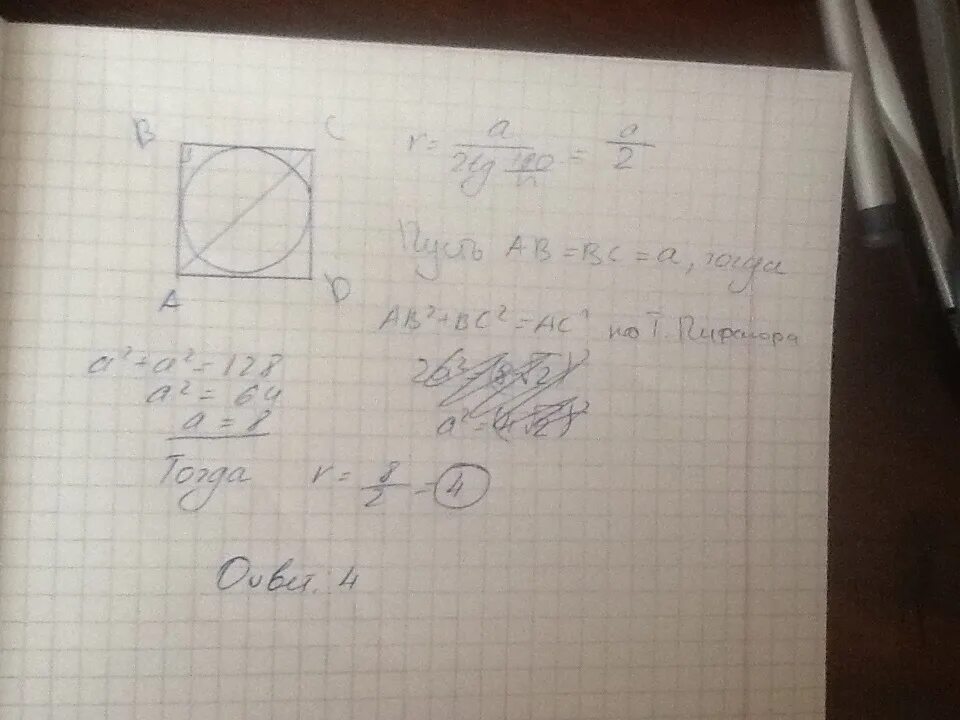 B C
r = a / 2tg 180/n = a/2
A D
Пусть AB = BC = a, тогда
AB² + BC² = AC² по Т. Пифагора
a² + a² = 128
a² = 64
a = 8
Тогда r = 8/2 = 4
Ответ. 4